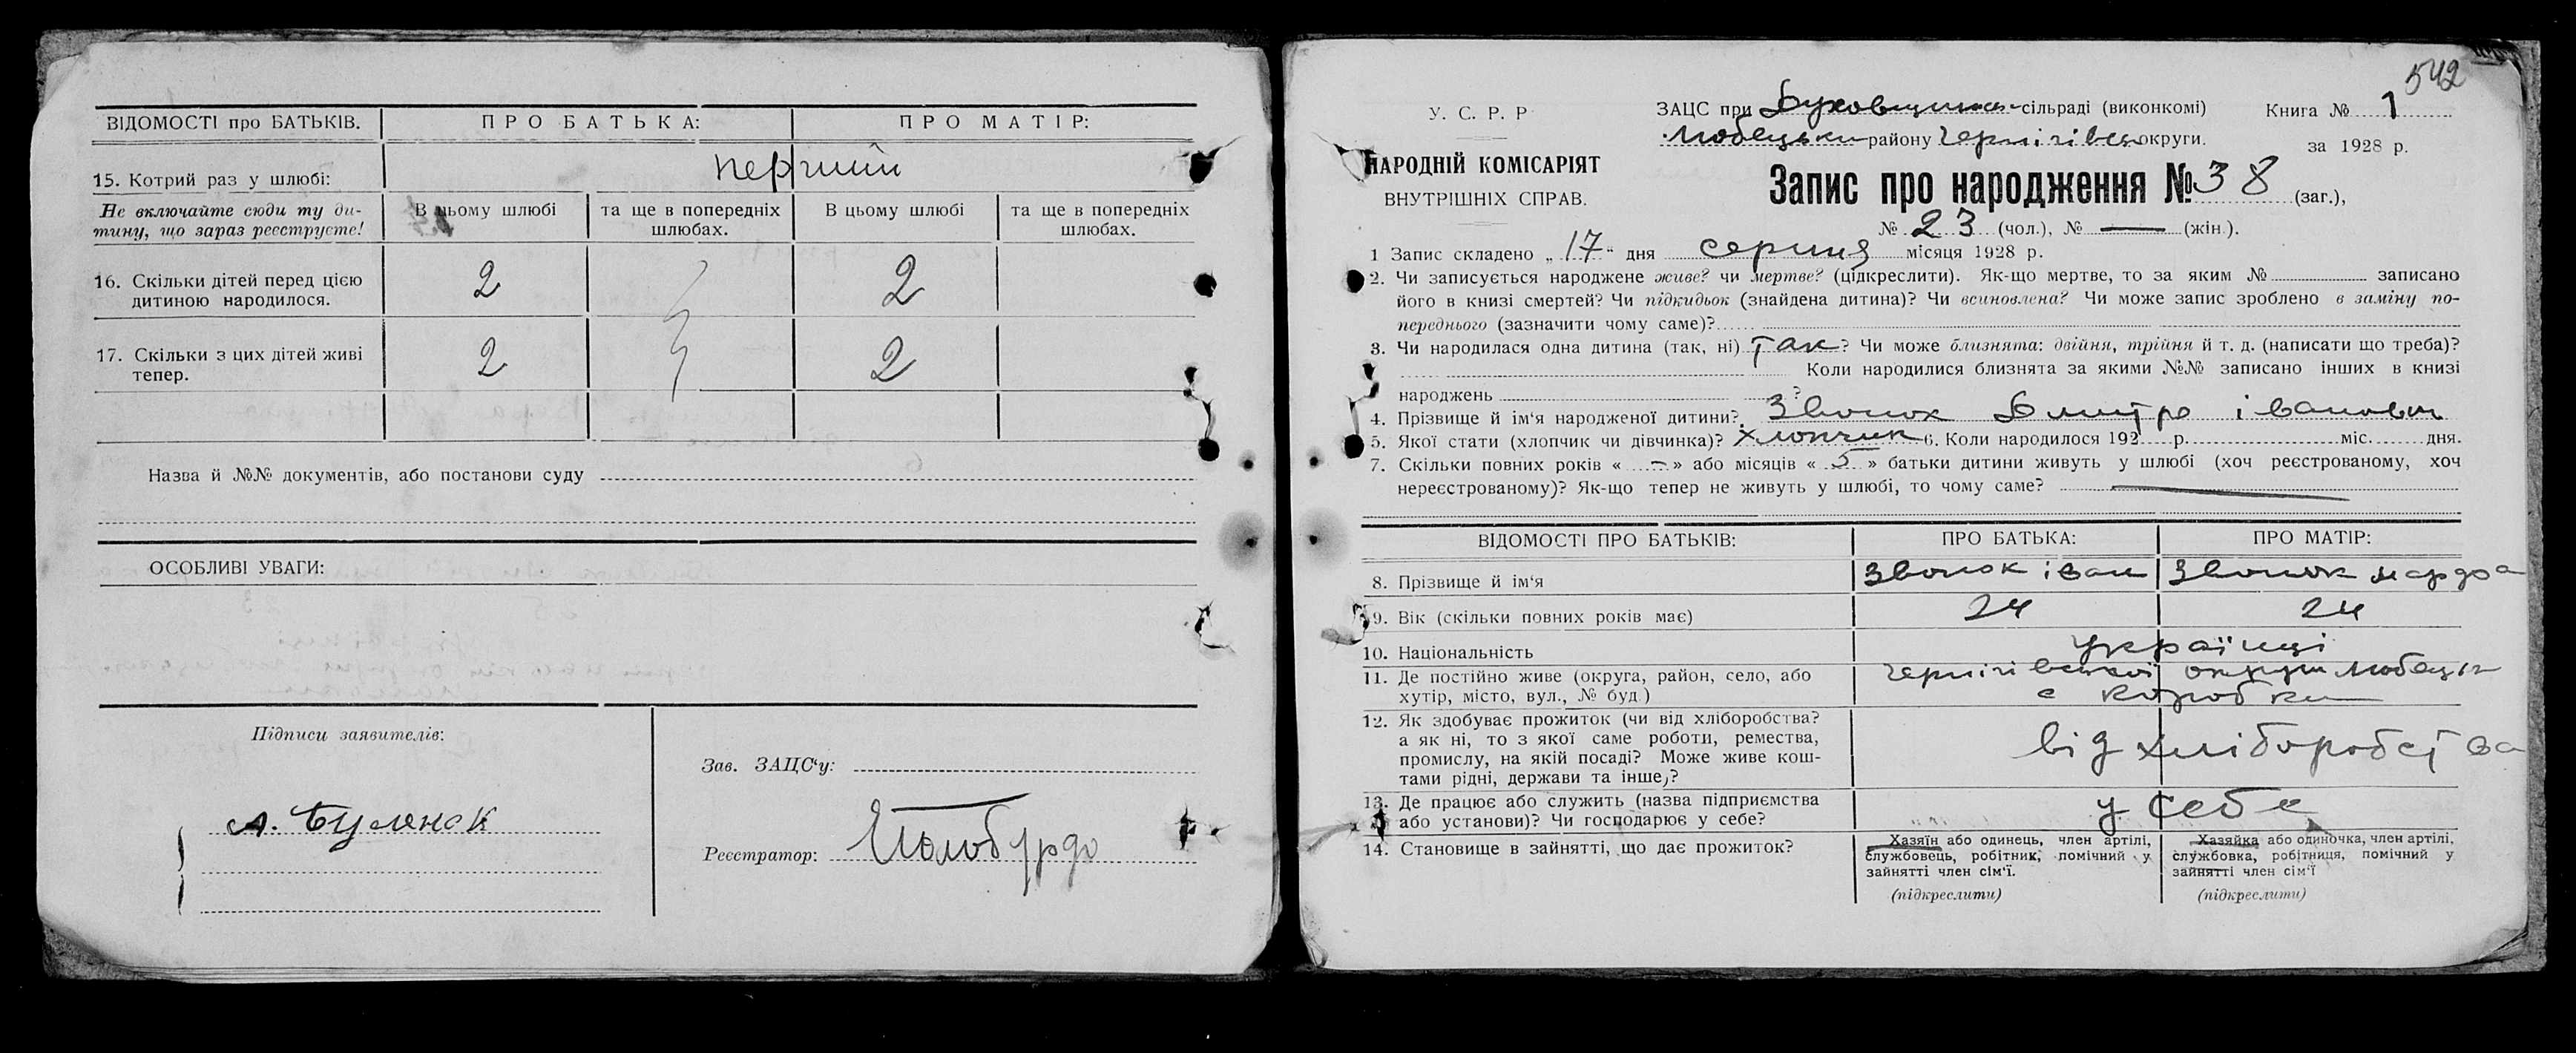 ВІДОМОСТІ про БАТЬКІВ. ПРО БАТЬКА: ПРО МАТІР:
15. Котрий раз у шлюбі: перший
Не включайте сюди ту ди-
тину, що зараз реєструєте!
В цьому шлюбі
та ще в попередніх
шлюбах.
В цьому шлюбі
та ще в попередніх
шлюбах.
16. Скільки дітей перед цією
дитиною народилося.
2 2
17. Скільки з цих дітей живі
тепер.
2 2
Назва й №№ документів, або постанови суду
ОСОБЛИВІ УВАГИ:
Підписи заявителів:
Зав. ЗАЦС‘у:
Реєстратор:
542
У. С. Р. Р
НАРОДНІЙ КОМІСАРІЯТ
ВНУТРІШНІХ СПРАВ.
ЗАЦС при Духовщинсь-сільраді (виконкомі)
Любецьки району Чернігівсь округи.
Книга № 1
за 1928 р.
Запис про народження № 38 (заг.),
№ 23 (чол.), № — (жін.).
1 Запис складено „ 17 “ дня серпня місяця 1928 р.
2. Чи записується народжене живе? чи мертве? (цідкреслити). Як-що мертве, то за яким № записано
його в книзі смертей? Чи підкидьок (знайдена дитина)? Чи всиновлена? Чи може запис зроблено в заміну по-
переднього (зазначити чому саме)?
3. Чи народилася одна дитина (так, ні) так ? Чи може близнята: двійня, трійня й т. д. (написати що треба)?
Коли народилися близнята за якими №№ записано інших в книзі
народжень ?
4. Прізвище й ім‘я народженої дитини? Звонок Дмитро іванович
5. Якої стати (хлопчик чи дівчинка)? хлопчик 6. Коли народилося 192 р. міс. дня.
7. Скільки повних років « – » або місяців « 5 » батьки дитини живуть у шлюбі (хоч реєстрованому, хоч
нереєстрованому)? Як-що тепер не живуть у шлюбі, то чому саме? —
ВІДОМОСТІ ПРО БАТЬКІВ: ПРО БАТЬКА: ПРО МАТІР:
8. Прізвище й ім‘я Звонок іван Звонок марфа
9. Вік (скільки повних років має) 24 24
10. Національність українці
11. Де постійно живе (округа, район, село, або
хутір, місто, вул., № буд)
Чернігівської округи Любецьк
с Коробки
12. Як здобуває прожиток (чи від хліборобства?
а як ні, то з якої саме роботи, ремества,
промислу, на якій посаді? Може живе кош-
тами рідні, держави та інше)?
від хліборобства
13. Де працює або служить (назва підприємства
або установи)? Чи господарює у себе?
у себе
14. Становище в зайнятті, що дає прожиток?
Хазяїн або одинець, член артілі,
службовець, робітник, помічний у
зайнятті член сім‘ї.
(підкреслити)
Хазяйка або одиночка, член артілі,
службовка, робітниця, помічний у
зайнятті член сім‘ї
(підкреслити)